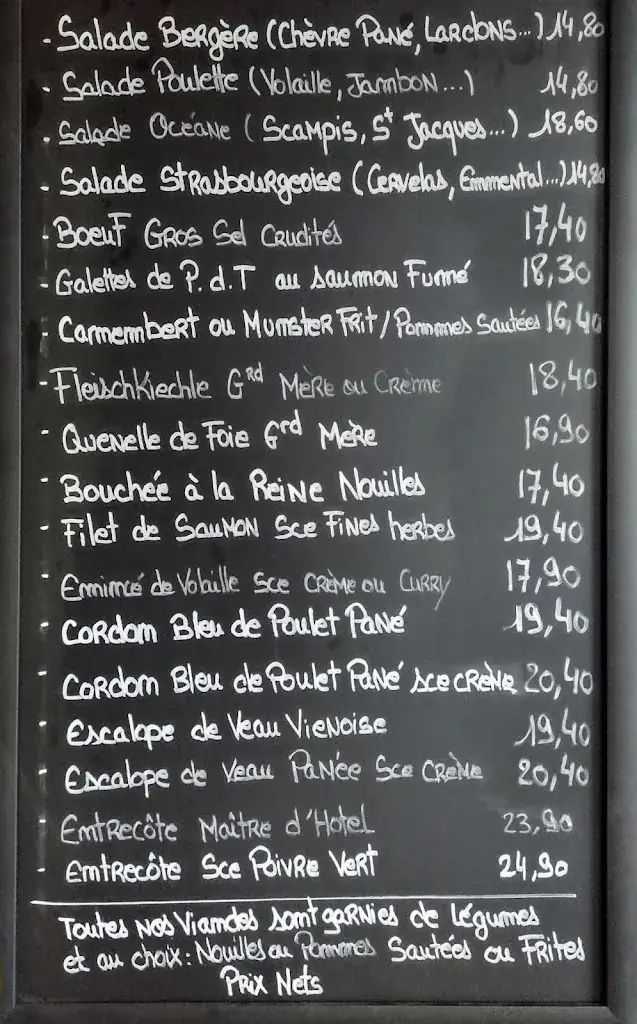 - Salade Bergère (Chèvre Pané, Lardons...) 14,80
- Salade Poulette (Volaille, Jambon...) 14,80
- Salade Océane (Scampis, St Jacques...) 18,60
- Salade Strasbourgeoise (Cervelas, Emmental...) 14,80
- Boeuf Gros Sel Crudités 17,40
- Galettes de P.d.T au saumon Fumé 18,30
- Camembert ou Munster Frit/Pommes Sautées 16,40
- Fleischkiechle Grd Mère ou Crème 18,40
- Quenelle de Foie Grd Mère 16,90
- Bouchée à la Reine Nouilles 17,40
- Filet de Saumon Sce Fines herbes 19,40
- Emincé de Volaille Sce Crème ou Curry 17,90
- Cordon Bleu de Poulet Pané 19,40
- Cordon Bleu de Poulet Pané sce crème 20,40
- Escalope de Veau Vienoise 19,40
- Escalope de Veau Panée Sce Crème 20,40
- Entrecôte Maître d'Hotel 23,90
- Entrecôte Sce Poivre Vert 24,90
Toutes nos Viandes sont garnies de légumes
et au choix: Nouilles ou Pommes Sautées ou Frites
Prix Nets